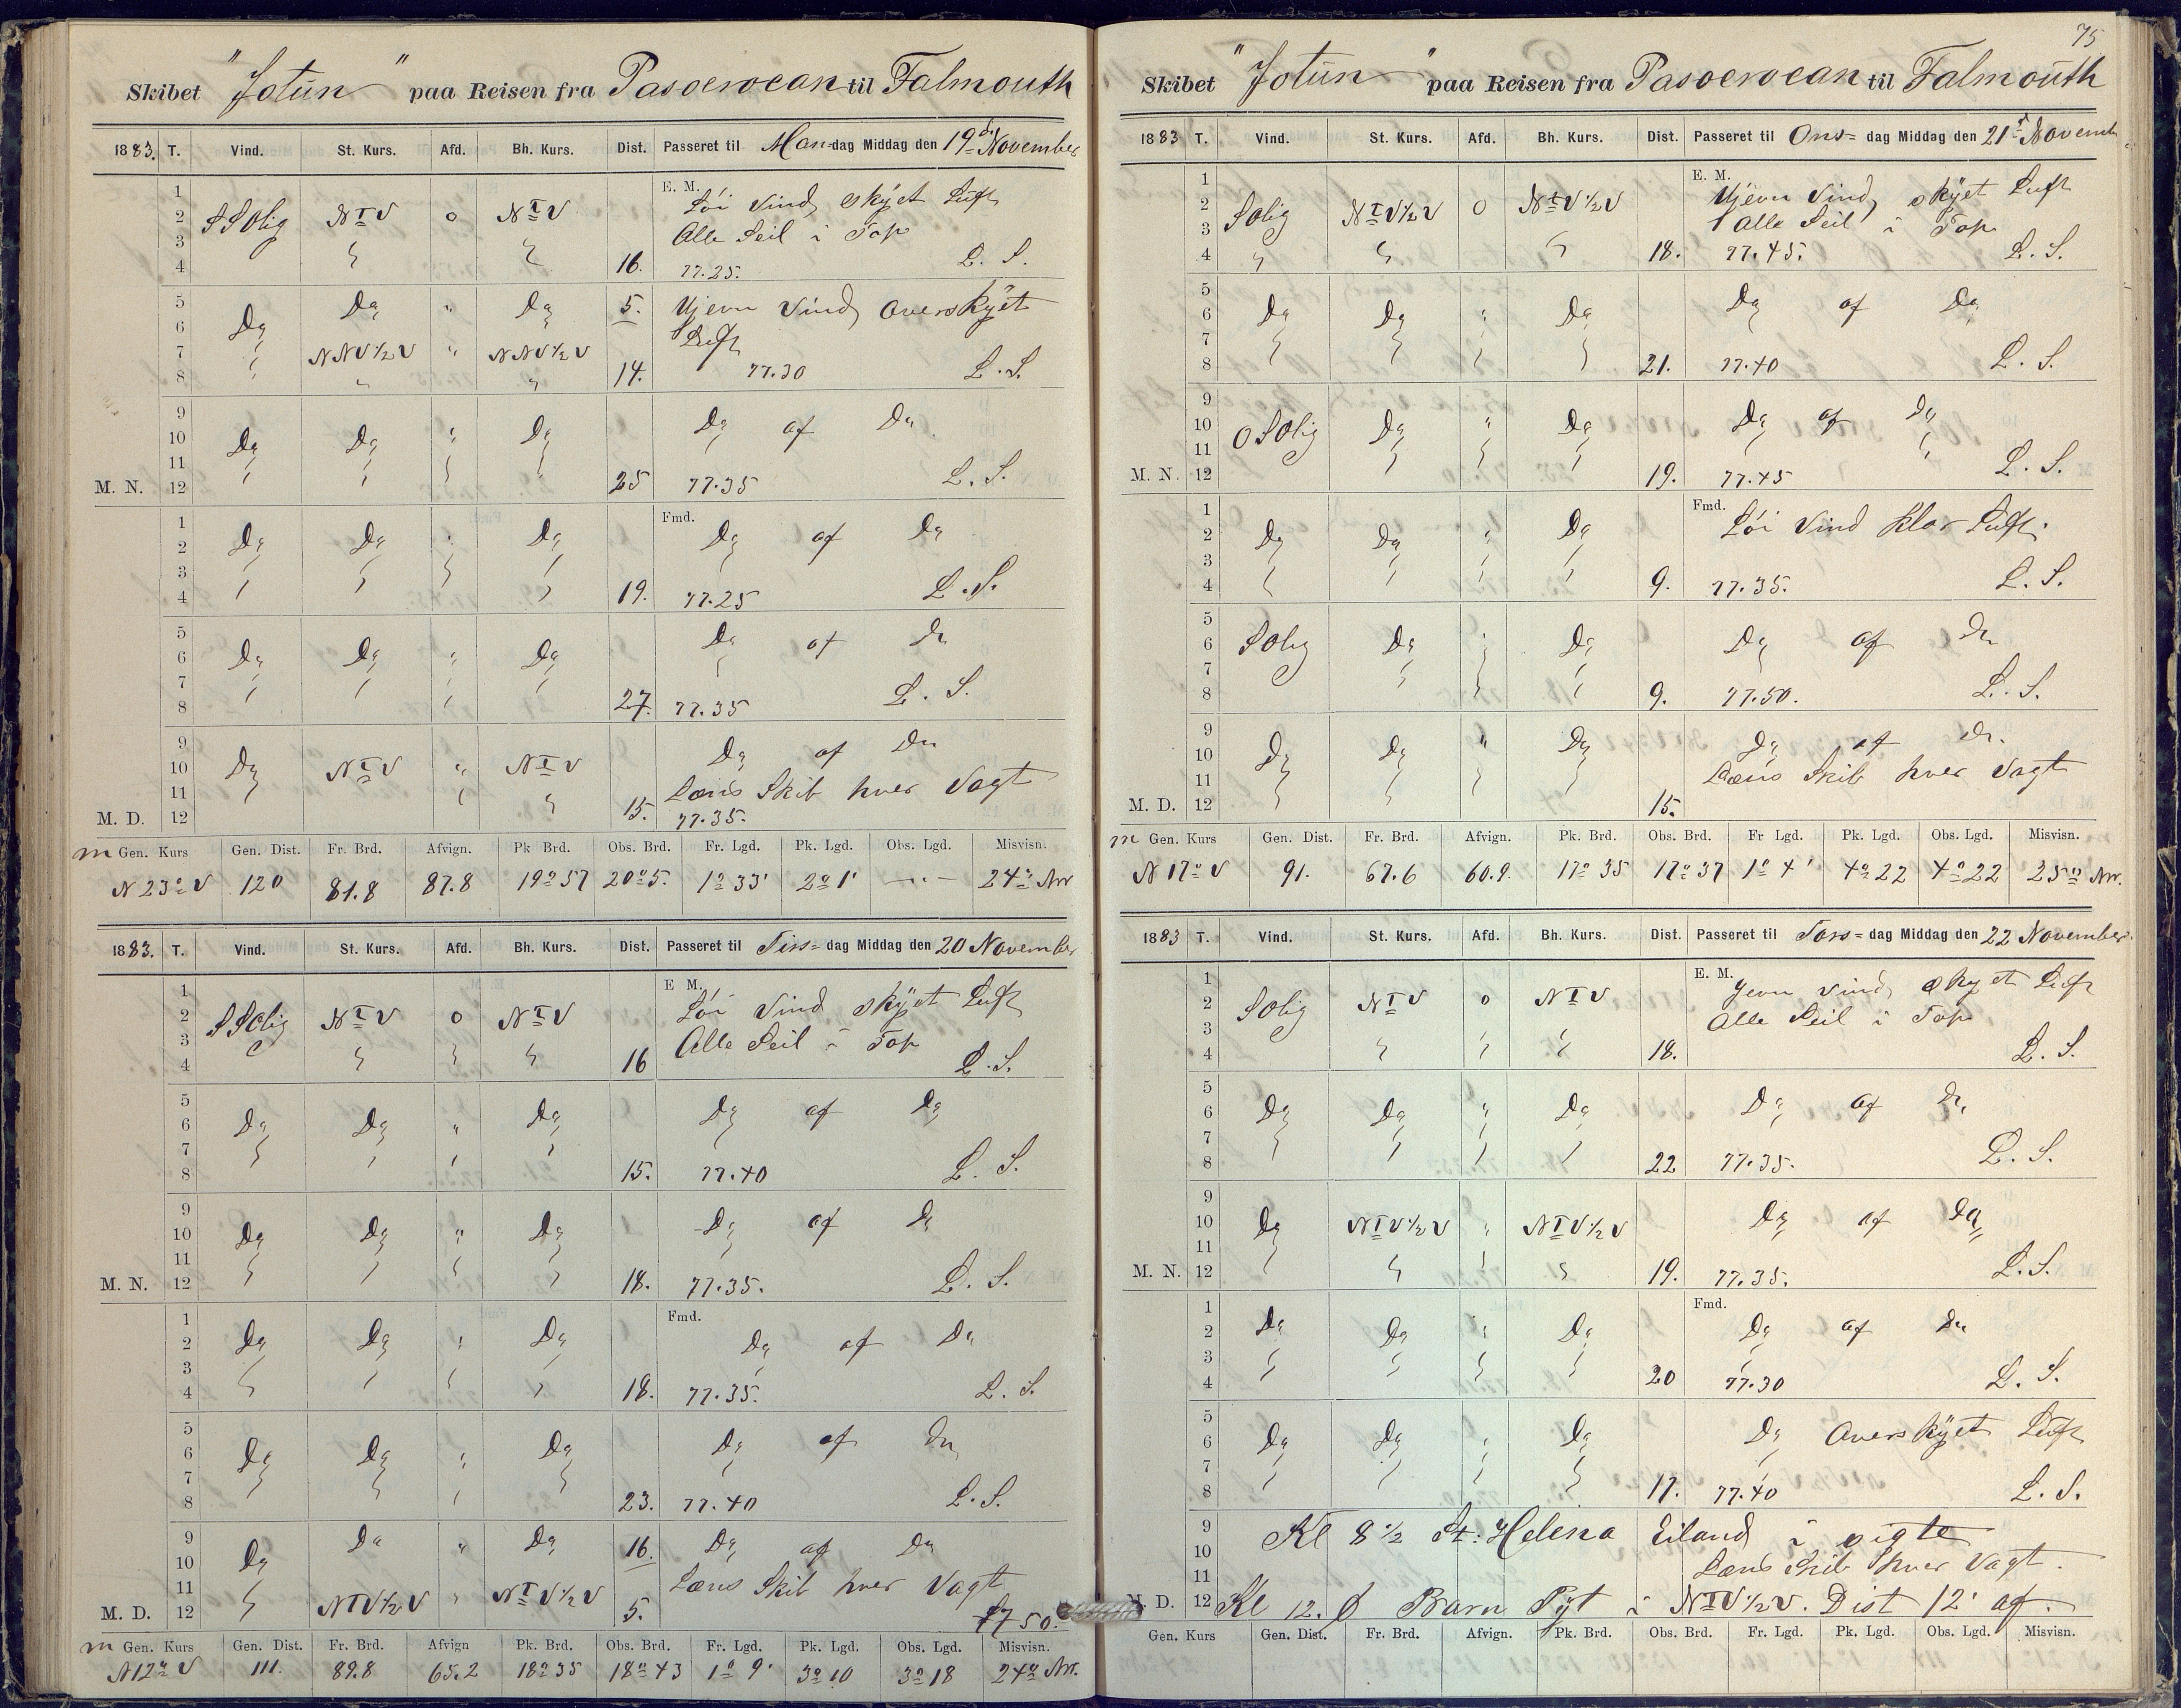 Skibet "Jotun" paa Reisen fra Pasoeroean til Falmouth
1883. T. Vind. St. Kurs. Afd. Bh. Kurs. Dist. Passeret til Man=dag Middag den 19de November
1 E. M. Löi Vind, skÿet Luft
2 SSOlig NTV 0 NTV Alle Seil i Top
3
4 16. 77.25. L. S.
5 Do Do " Do 5. Ujevn Vind overskÿet
6 Luft
7 NNV½V " NNV½V
8 " " 14. 77.30 L. S.
9
10 Do Do " Do Do af Do
11
M. N. 12 25 77.35 L. S.
1 Fmd.
2 Do Do " Do Do af Do
3
4 19. 77.25 L. S.
5
6 Do Do " Do Do af Do
7
8 27. 77.35 L. S.
9 Do af Do
10 Do NTV " NTV
11 Læns Skib hver Vagt
M. D. 12 15. 77.35.
m Gen. Kurs Gen. Dist. Fr. Brd. Afvign. Pk Brd. Obs. Brd. Fr. Lgd. Pk. Lgd. Obs. Lgd. Misvisn.
N 23° V 120 81.8 87.8 19° 57 20° 5. 1° 33' 2° 1' — 24° NV
1883. T. Vind. St. Kurs. Afd. Bh. Kurs. Dist. Passeret til Tirs=dag Middag den 20 November
1 E M. Löi Vind skÿet Luft
2 SSOlig NTV 0 NTV
3 Alle Seil i Top
4 16 L. S.
5
6 Do Do " Do Do af Do
7
8 15. 77.40 L. S.
9
10 Do Do " Do Do af Do
11
M. N. 12 18. 77.35. L. S.
1 Fmd.
2 Do Do " Do Do af Do
3
4 18. 77.35. L. S.
5
6 Do Do " Do Do af Do
7
8 23. 77.40 L. S.
9 Do Do " Do 16. Do af Do
10
11 Læns Skib hver Vagt
M. D. 12 NTV½V " NTV½V 5. 77 50.
m Gen. Kurs Gen. Dist. Fr. Brd. Afvign Pk. Brd. Obs. Brd. Fr. Lgd. Pk. Lgd. Obs. Lgd. Misvisn.
N 12° V 111. 89.8 65.2 18° 35 18° 43 1° 9' 3° 10 3° 18 24° NV.
75
Skibet "Jotun" paa Reisen fra Pasoeroean til Falmouth
1883 T. Vind. St. Kurs. Afd. Bh. Kurs. Dist. Passeret til Ons= dag Middag den 21st Novemb
1 E. M. Ujevn Vind, skÿet Luft
2 SOlig NTV½V 0 NTV½V
3 Alle Seil i Top
4 18. 77.45. L. S.
5
6 Do Do " Do Do af Do
7
8 21. 77.40 L. S.
9
10 OSOlig Do " Do Do af Do
11
M. N. 12 19. 77.45 L. S.
1 Fmd. Löi Vind klar Luft.
2 Do Do " Do
3
4 9. 77.35. L. S.
5
6 SOlig Do " Do Do af Do
7
8 9. 77.50. L. S.
9
10 Do Do " Do Do af Do
11 Læns Skib hver Vagt
M. D. 12 15.
m Gen. Kurs Gen. Dist. Fr. Brd. Afvign. Pk. Brd. Obs. Brd. Fr Lgd. Pk. Lgd. Obs. Lgd. Misvisn.
N 17° V 91. 67.6 60.9. 17° 35 17° 37 1° 4' 4° 22 4° 22 25° NV.
1883 T. Vind. St. Kurs. Afd. Bh. Kurs. Dist. Passeret til Tors= dag Middag den 22 November
1 E. M. Jevn Vind, skyet Luft
2 SOlig NTV 0 NTV Alle Seil i Top
3
4 18. L. S.
5
6 Do Do " Do Do af Do
7
8 22 77.35. L. S.
9
10 Do NTV½V " NTV½V Do af Do
11
M. N. 12 19. 77.35. L. S.
1 Fmd.
2 Do Do " Do Do af Do
3
4 20 77.30 L. S.
5
6 Do Do " Do Do Overskÿet Luft
7
8 17. 77.40 L. S.
9 Kl 8½ St: Helena Eiland i sigte
10
11 Læns Skib hver Vagt.
M. D. 12 Kl 12. Barn Pÿt i NTV½V. Dist 12' af.
Gen. Kurs Gen. Dist. Fr. Brd. Afvign. Pk. Brd. Obs. Brd. Fr. Lgd. Pk. Lgd. Obs. Lgd. Misvisn.